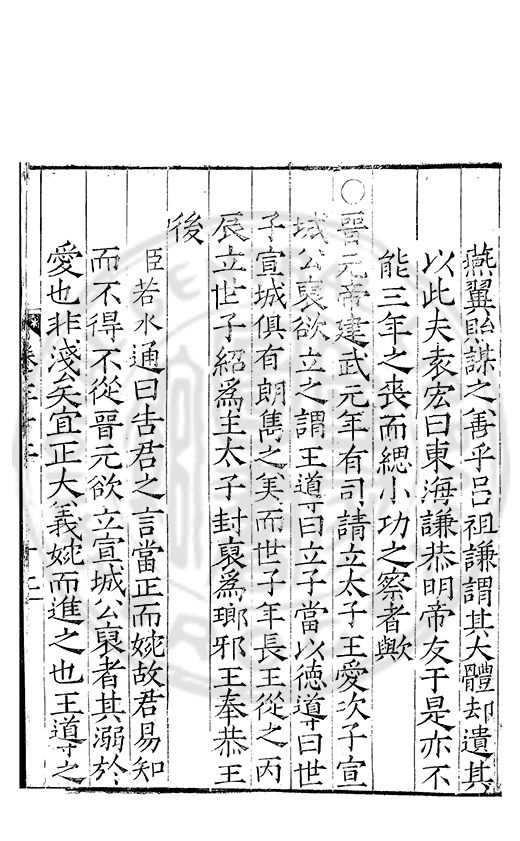 燕翼貽謀之善乎呂祖謙謂其大體却遺其
以此夫袁宏曰東海謙恭明帝友于是亦不
能三年之喪而緦小功之察者歟
○晉元帝建武元年有司請立太子王愛次子宣
城公裒欲立之謂王導曰立子當以德導曰世
子宣城俱有朗雋之美而世子年長王從之丙
辰立世子紹爲王太子封裒爲瑯邪王奉恭王
後
臣若水通曰告君之言當正而婉故君易知
而不得不從晉元欲立宣城公裒者其溺於
愛也非淺矣宜正大義婉而進之也王導之